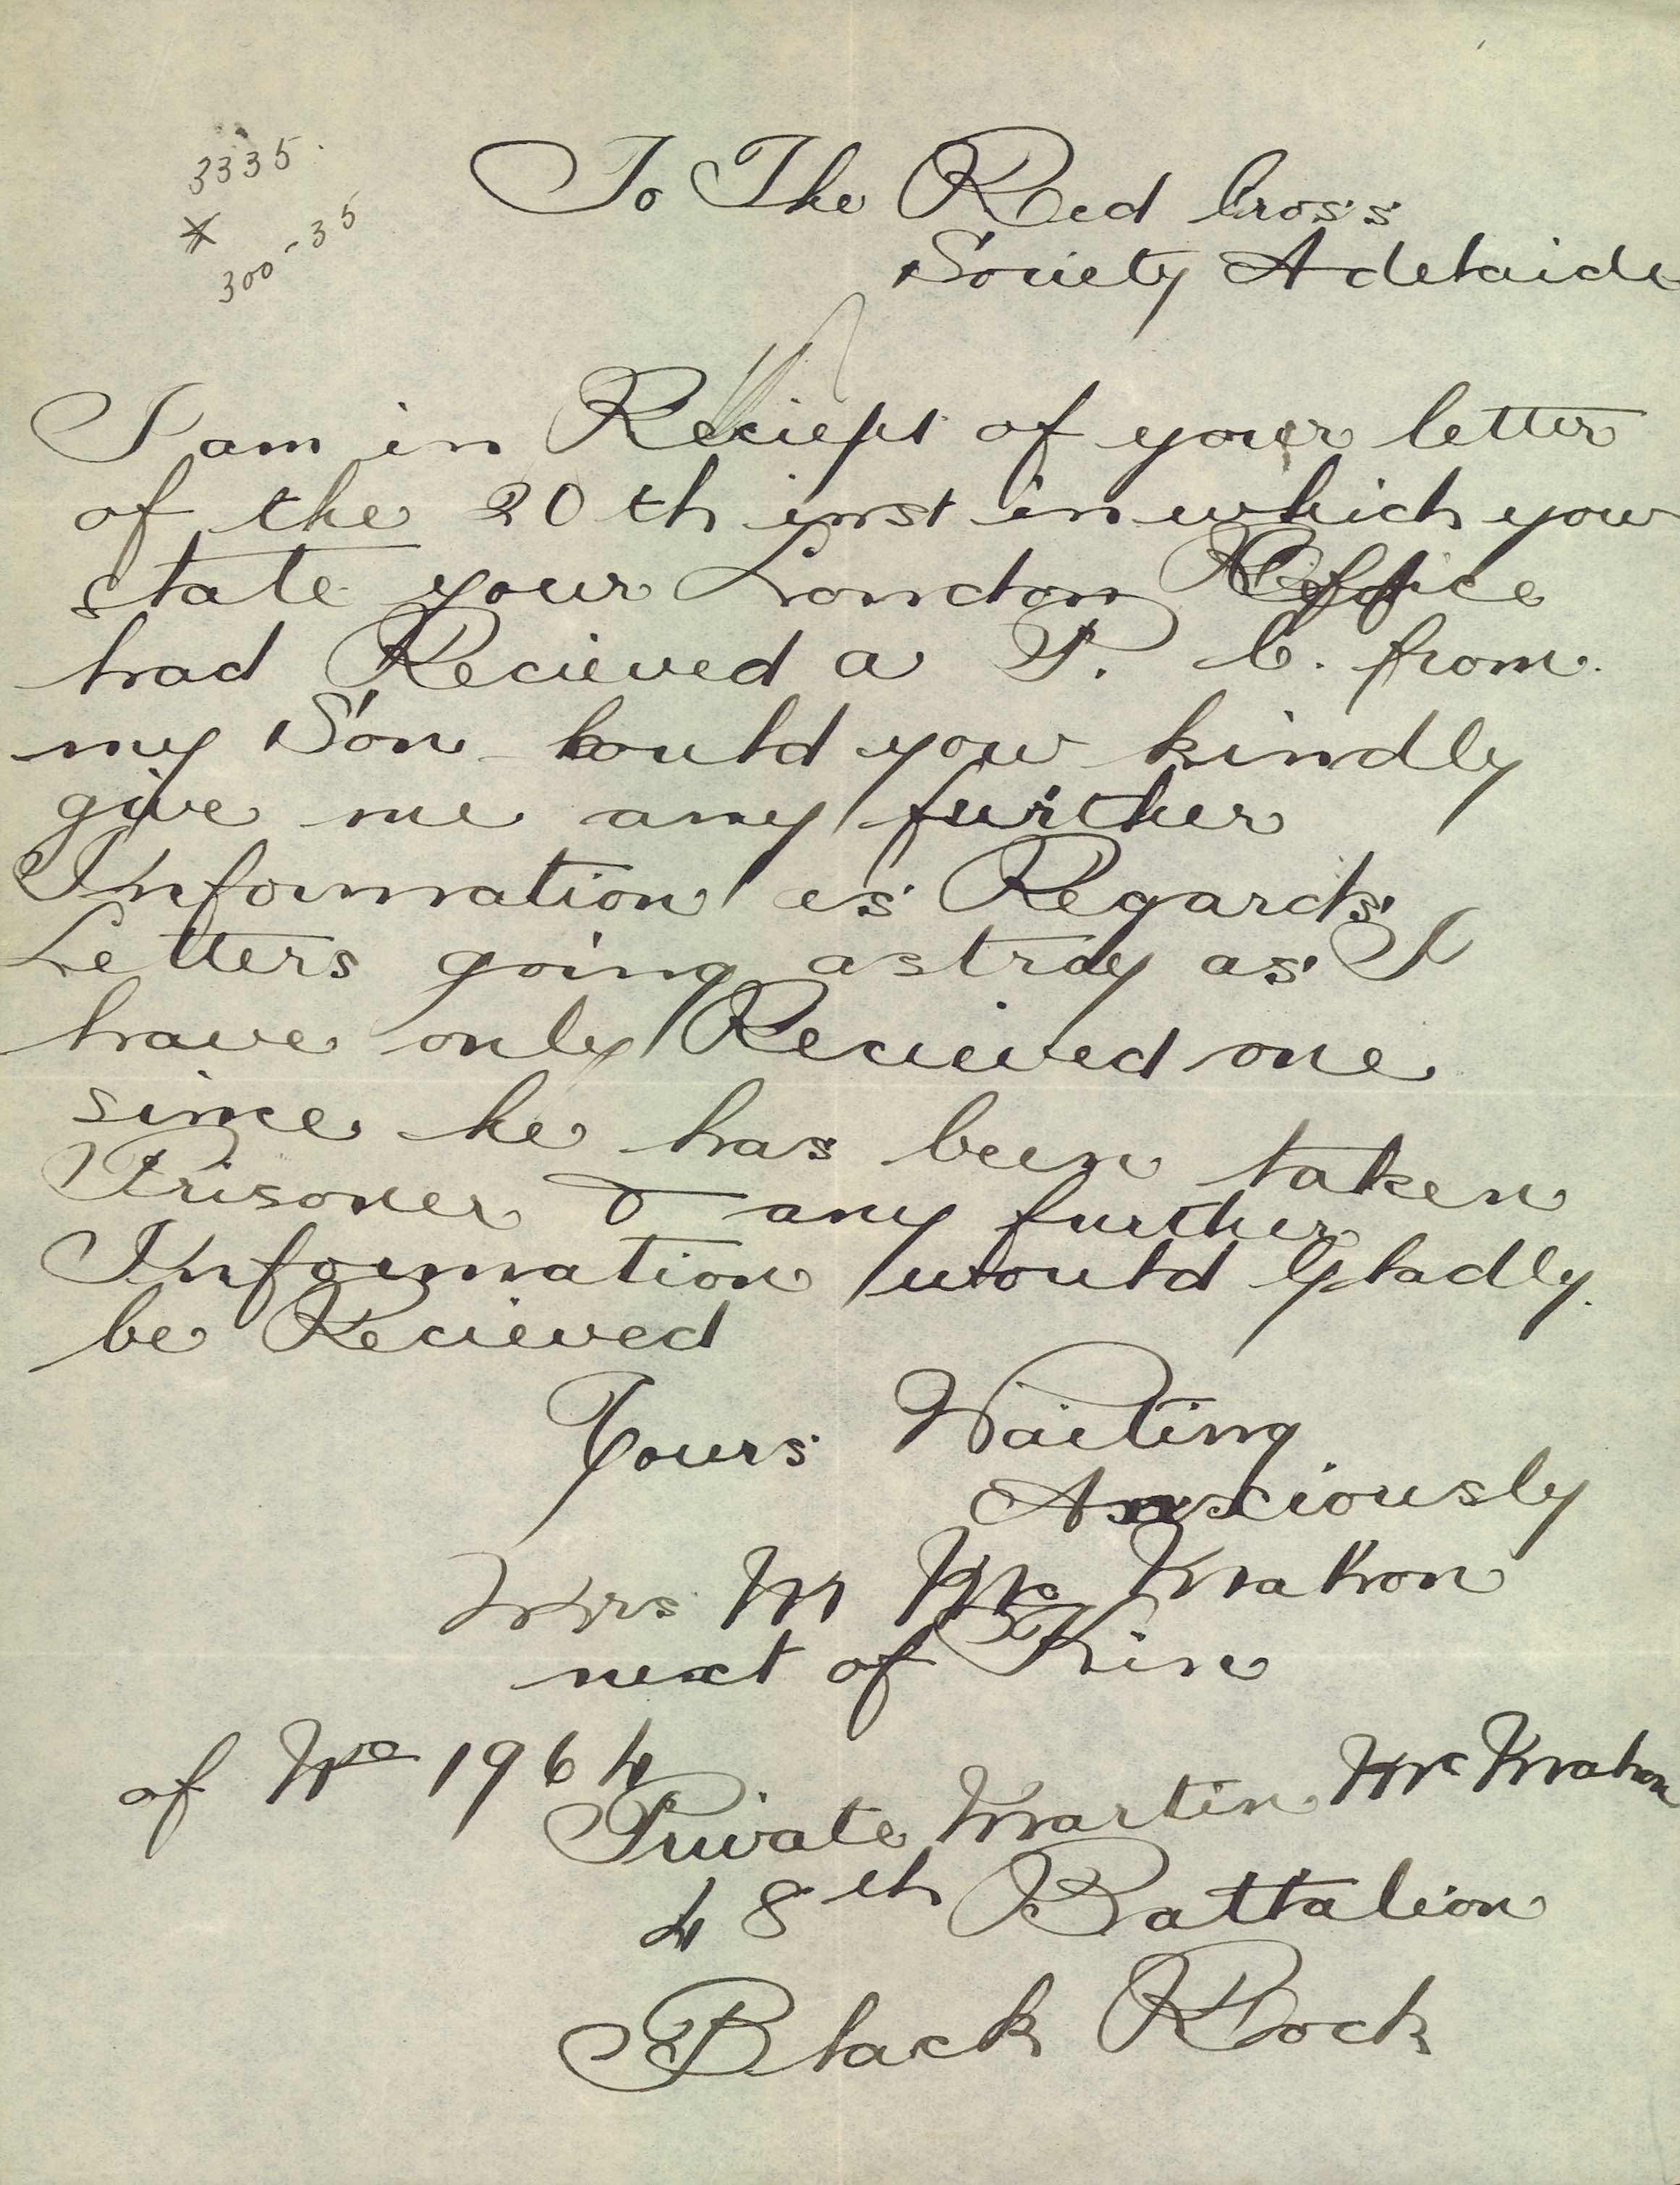 3335.
300-35
To The Red Cross
Society Adelaide
I am in Reciept of your letter
of the 20th inst in which you
state your London Office
had Recieved a P. C. from.
my Son Could you kindly
give me any further
Information as Regards
Letters going astray as I
have only Recieved one
since he has been taken
Prisoner & any further
Information would Gladly.
be Recieved
Yours Waiting
Anxiously
Mrs M Mc Mahon
next of Kin
of No 1964
Private Martin McMahon
48th Battalion
Black Rock